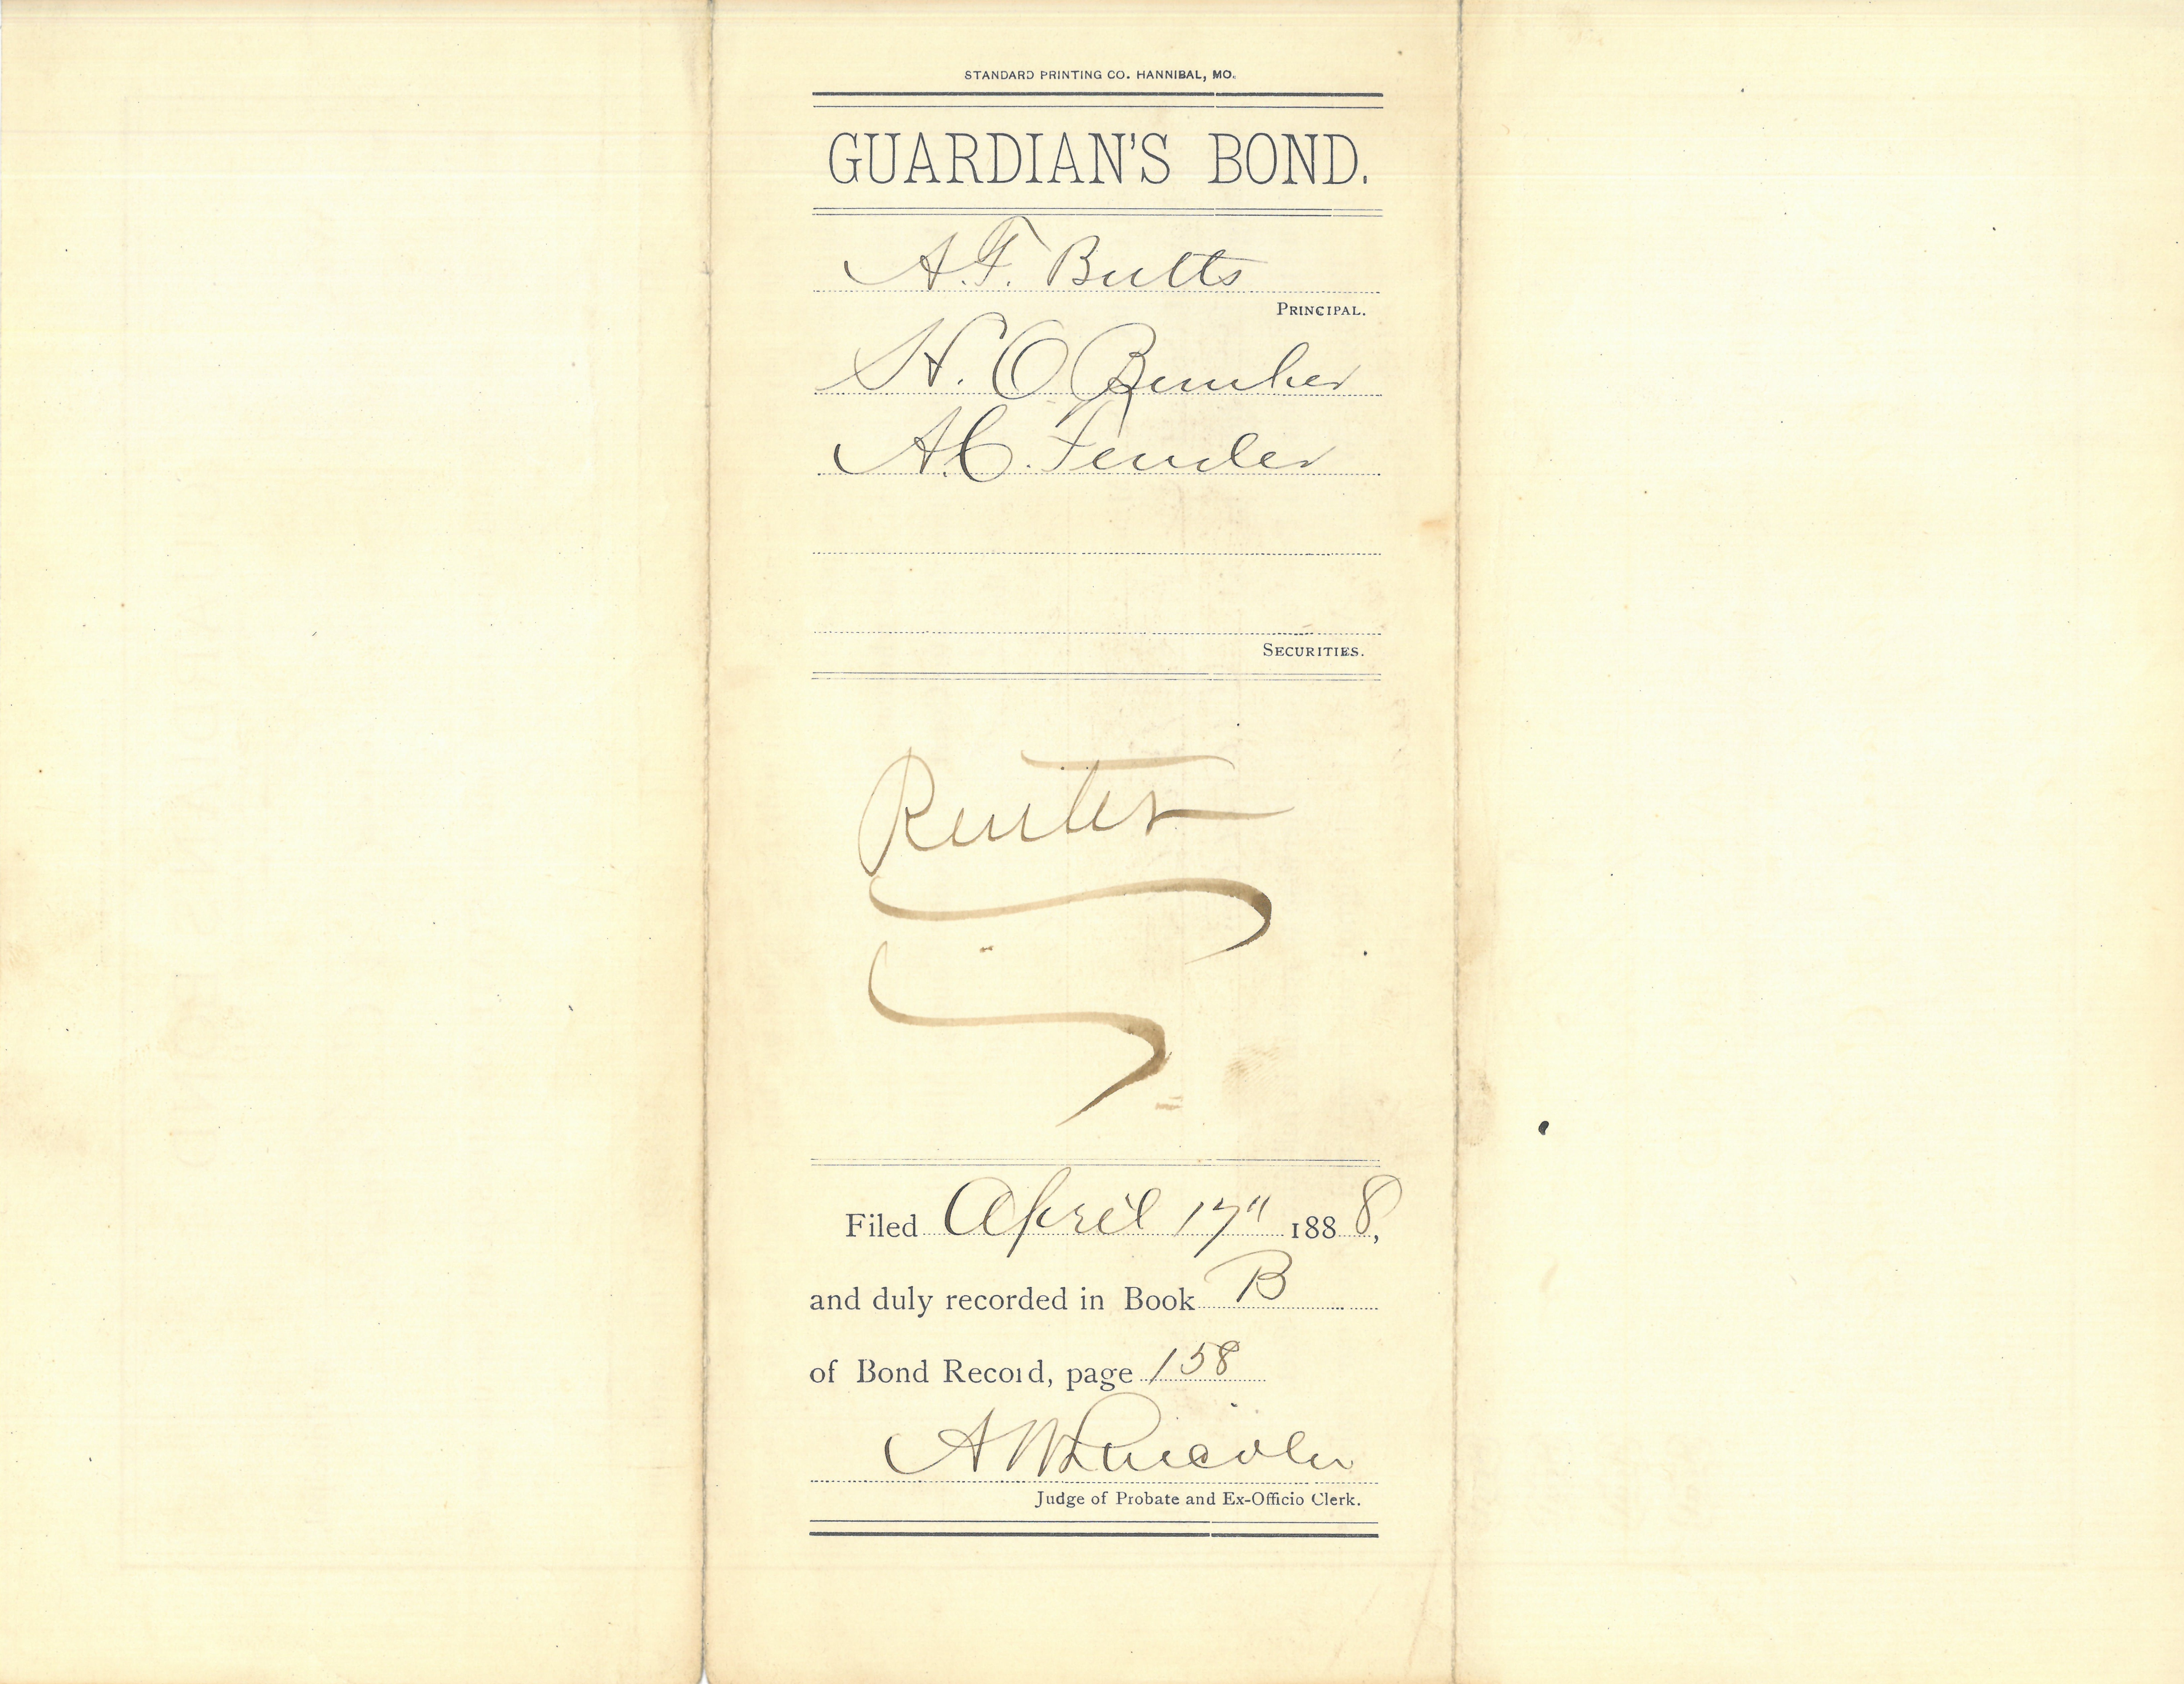 STANDARD PRINTING CO. HANNIBAL, MO.
GUARDIAN'S BOND.
A. F. Butts
PRINCIPAL.
H. O. Bunker
A. C. Fender
SECURITIES.
Renter
Filed April 17" 1888,
and duly recorded in Book B
of Bond Record, page 158
A W Lincoln
Judge of Probate and Ex-Officio Clerk.